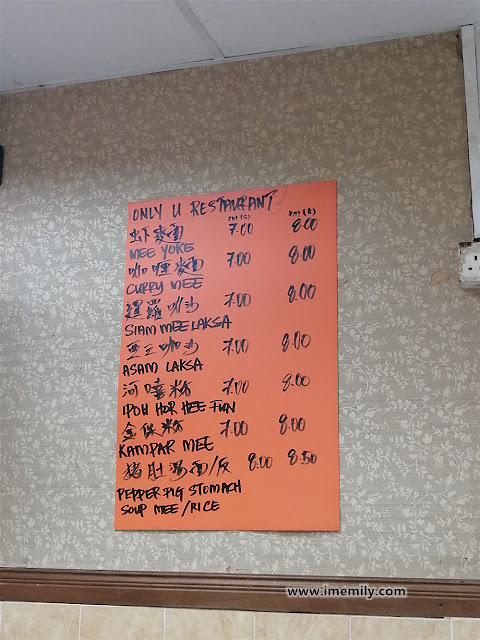 ONLY U RESTAURANT
RM (S) RM (B)
虾麵 7.00 8.00
MEE YOKE
咖喱麵 7.00 8.00
CURRY MEE
暹羅叻沙 7.00 8.00
SIAM MEE LAKSA
亚三叻沙 7.00 8.00
ASAM LAKSA
河嘻粉 7.00 8.00
IPOH HOR HEE FUN
金保粉 7.00 8.00
KAMPAR MEE
猪肚湯面/反 8.00 8.50
PEPPER PIG STOMACH
SOUP MEE/RICE
www.imemily.com